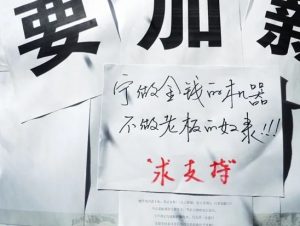 要加薪
宁做金钱的机器
不做老板的奴隶!!!
"求支持"